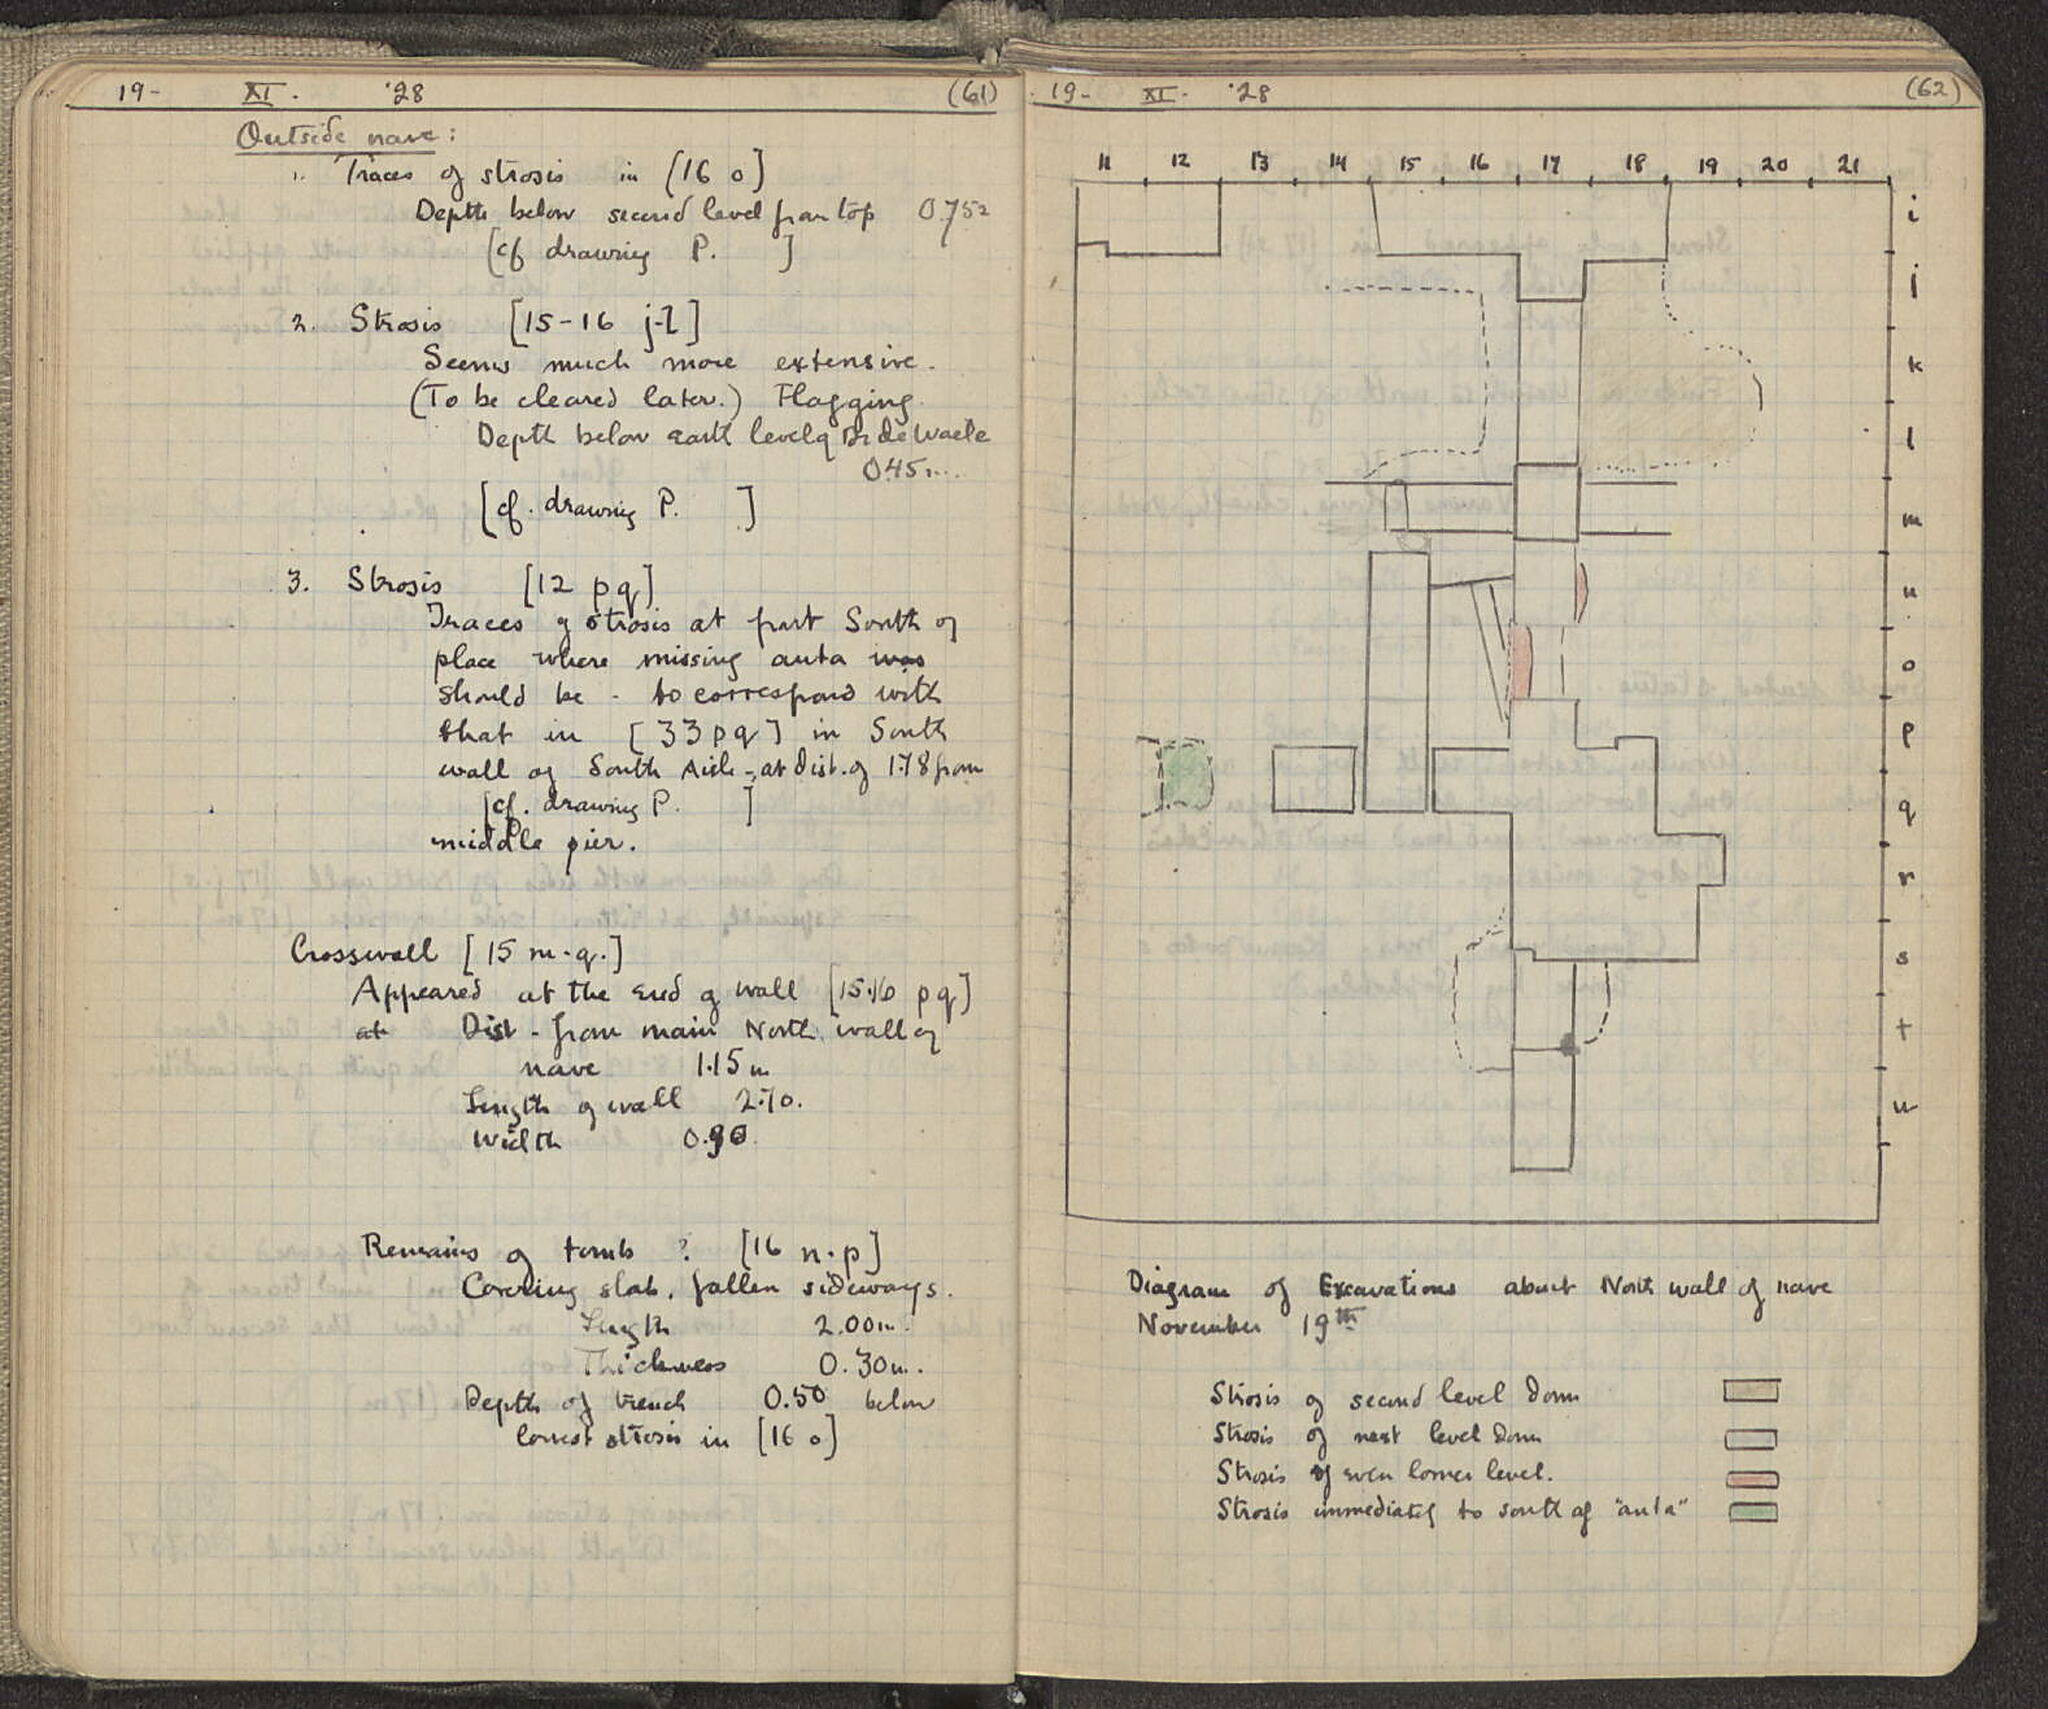 19- XI. '28 (61)
Outside nave:
1. Traces of strosis in [16 o]
Depth below second level from top 0.752
[cf drawing P. ]
2. Strosis [15-16 j-l]
Seems much more extensive.
(To be cleared later.) Flagging.
Depth below earth level of Dr de Waele
0.45 m.
[cf. drawing P. ]
3. Strosis [12 pq]
Traces of strosis at part South of
place where missing anta was
should be - to correspond with
that in [33 pq] in South
wall of South Aisle - at dist. of 1.78 from
[cf. drawing P. ]
middle pier.
Crosswall [15 m-q.]
Appeared at the end of wall [15-16 pq]
at Dist - from main North wall of
nave 1.15 m
Length of wall 2.70.
Width 0.90
Remains of tomb ? [16 n-p]
Covering slab, fallen sideways.
Length 2.00 m.
Thickness 0.30 m.
Depth of trench 0.50 below
lowest strosis in [16 o]
19- XI. '28 (62)
11 12 13 14 15 16 17 18 19 20 21
i
j
k
l
m
n
o
p
q
r
s
t
u
Diagram of Excavations about North wall of nave
November 19th
Strosis of second level down
Strosis of next level down
Strosis of even lower level.
Strosis immediately to south of "anta"